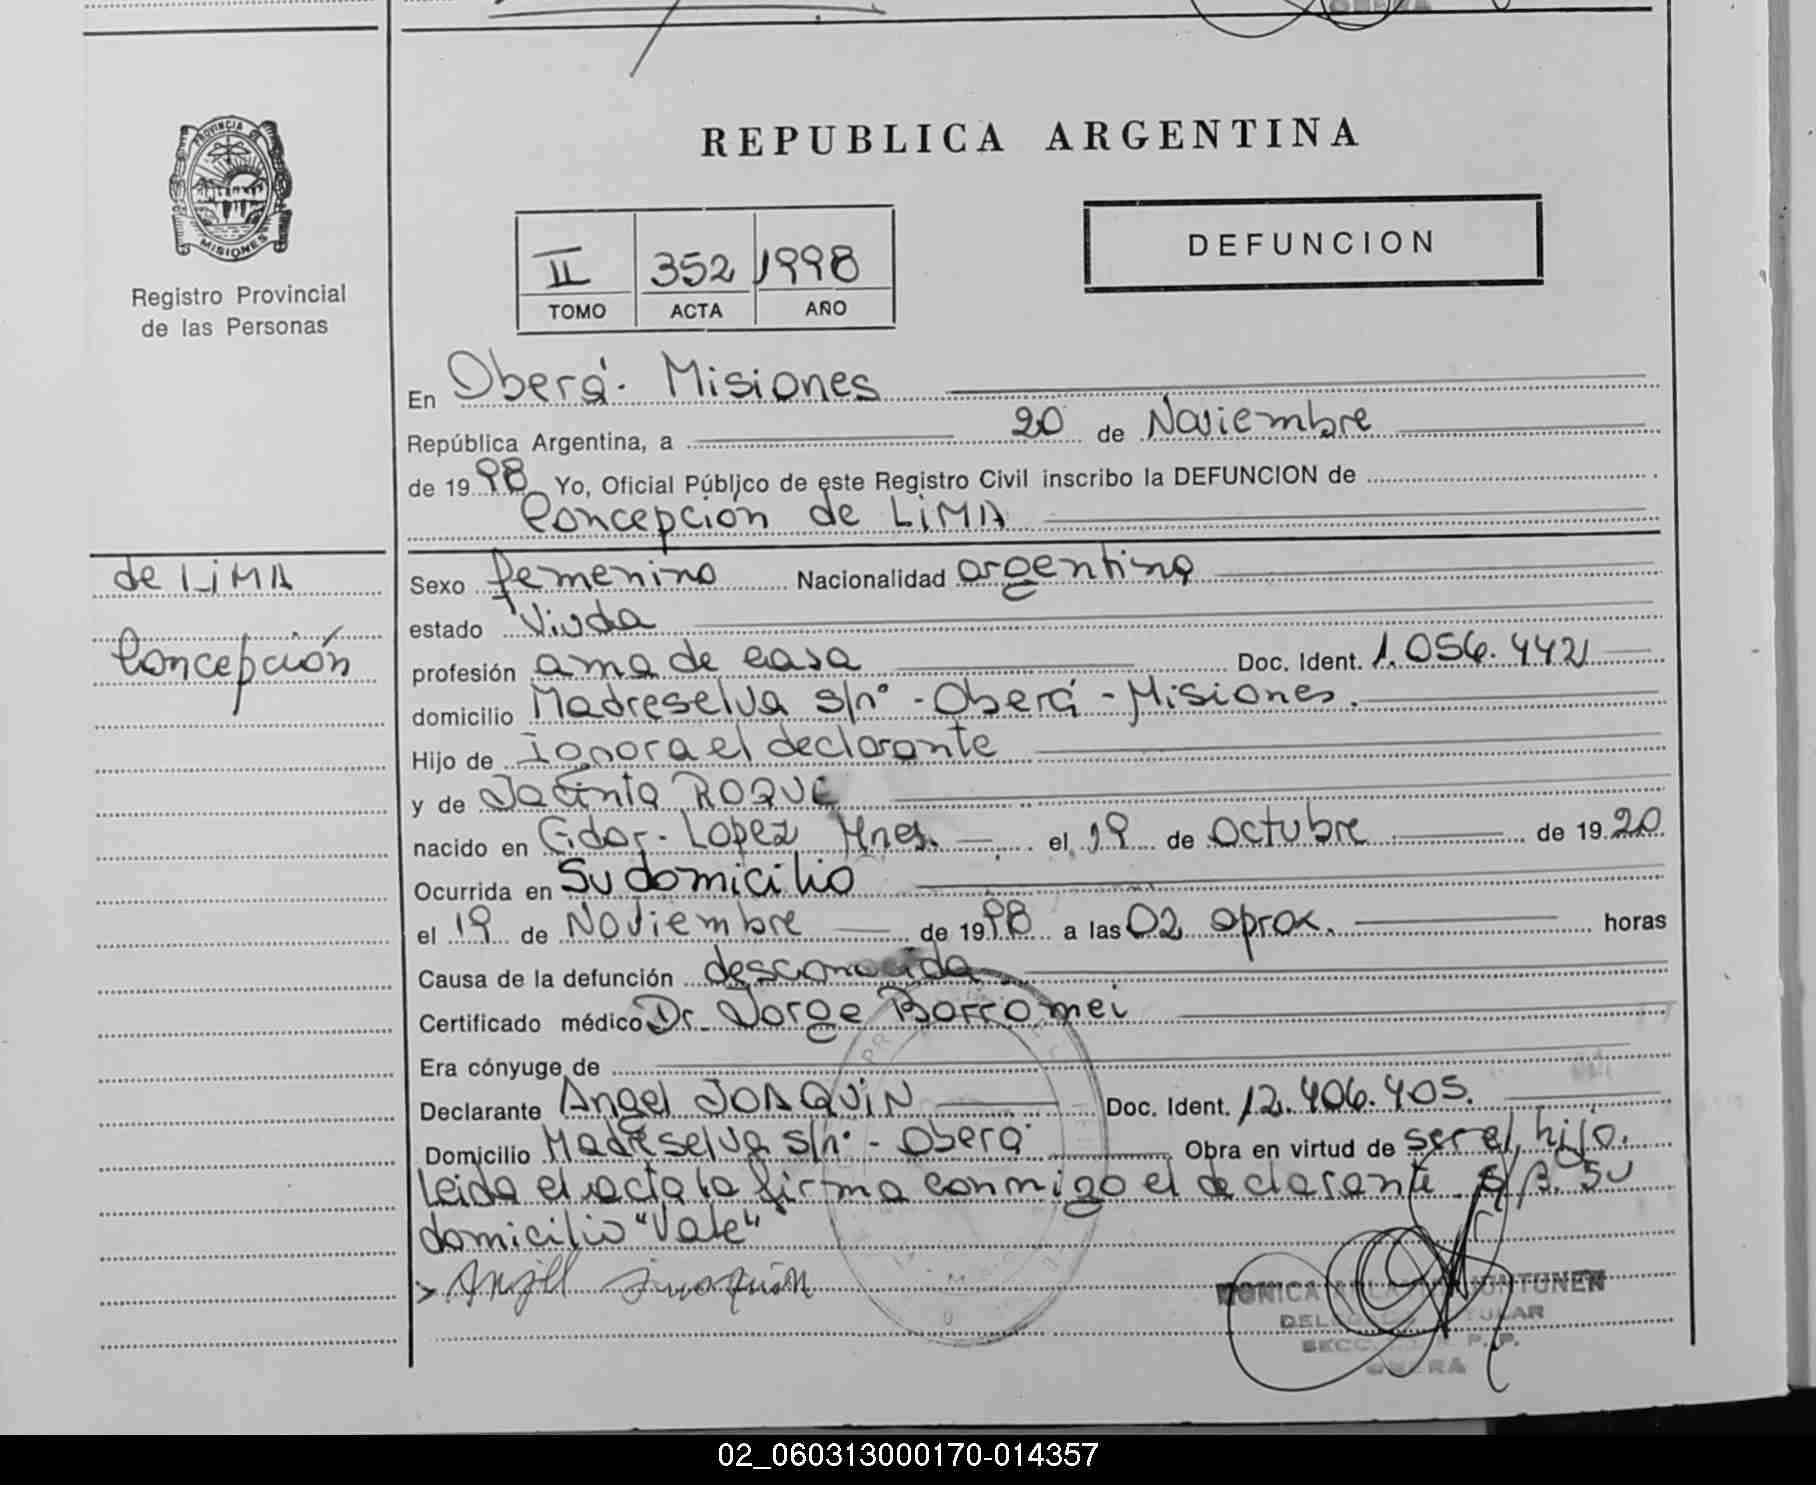 PROVINCIA DE
MISIONES
Registro Provincial
de las Personas
REPUBLICA ARGENTINA
II 352 1998
TOMO ACTA AÑO
DEFUNCION
En Oberá - Misiones
República Argentina, a 20 de Noviembre
de 1998 Yo, Oficial Público de este Registro Civil inscribo la DEFUNCION de
Concepcion de LiMA
de LiMA
Concepción
Sexo femenino Nacionalidad argentina
estado Viuda
profesión ama de casa Doc. Ident. 1.056.442
domicilio Madreselva s/n° - Oberá - Misiones.
Hijo de Ignora el declarante
y de Jacinta ROQUE
nacido en Gdor. Lopez Mnes. el 19 de Octubre de 1920
Ocurrida en Su domicilio
el 19 de Noviembre de 1998 a las 02 aprox. horas
Causa de la defunción desconocida
Certificado médico Dr. Jorge Borromei
Era cónyuge de
Declarante Angel JOAQUiN Doc. Ident. 12.406.405.
Domicilio Madreselva s/n° - Oberá Obra en virtud de ser el hijo.
Leida el acta la firma conmigo el declarante. S/B. Su
domicilio "Vale"
OBERA
02_060313000170-014357